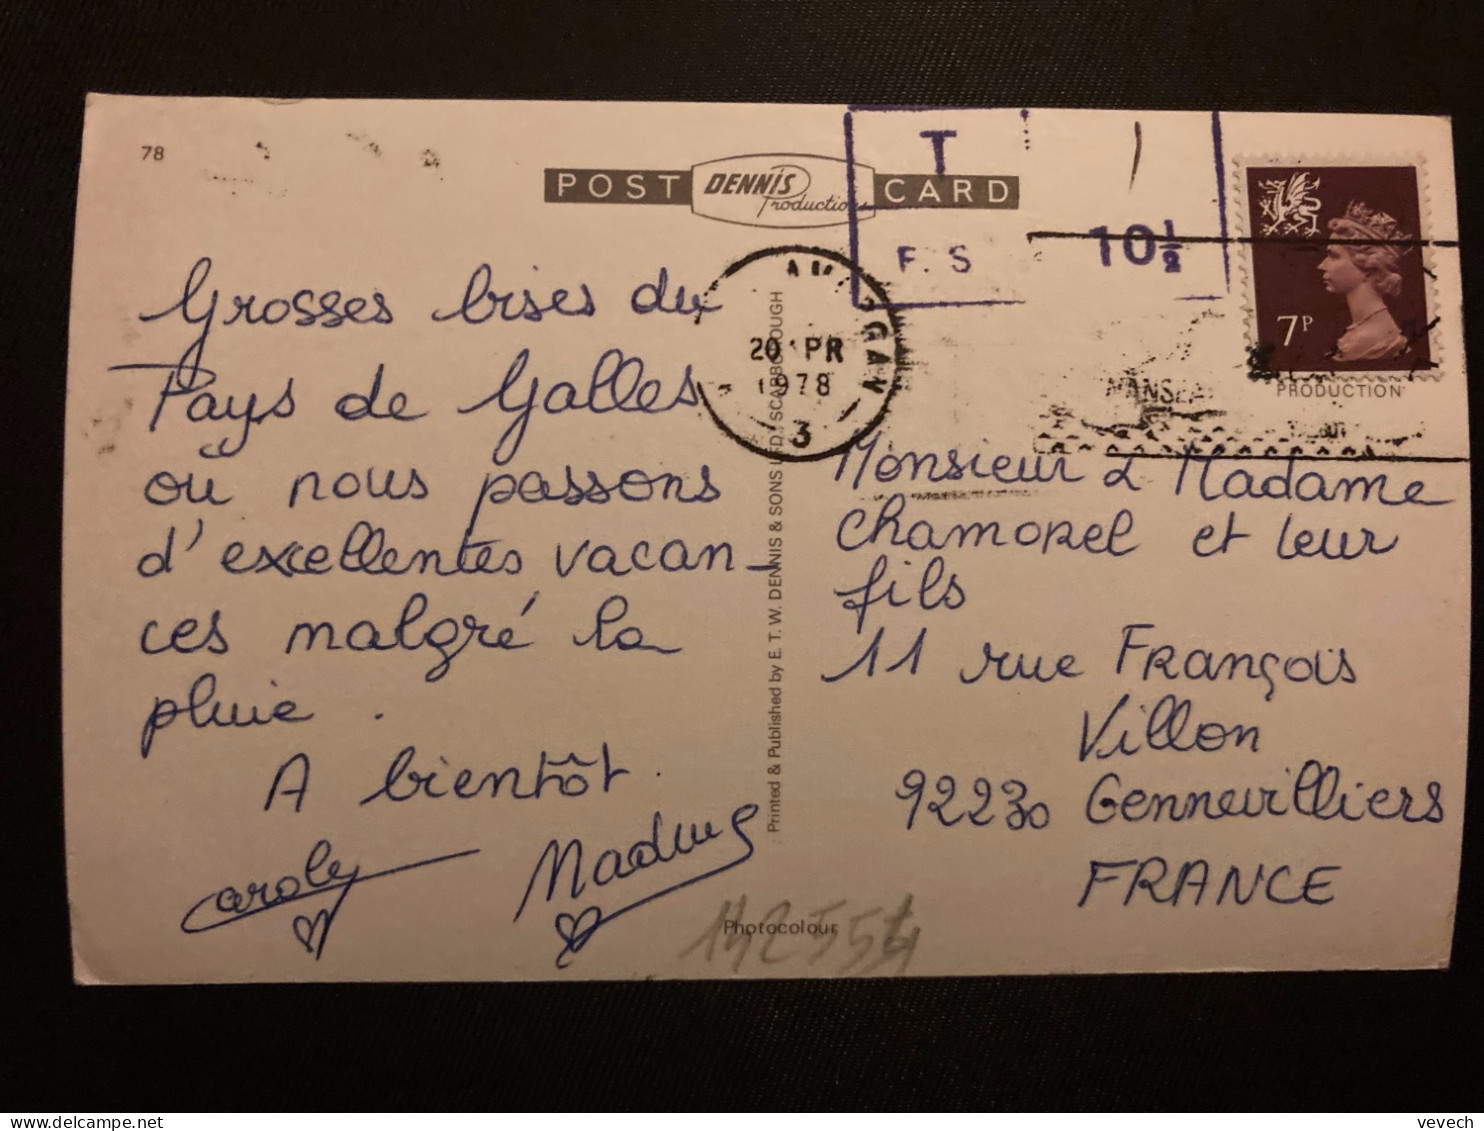 78
POST DENNIS Productions CARD
T
F. S
10½
7P
PRODUCTION
20 APR
1978
3
Grosses bises du
Pays de Galles
où nous passons
d'excellentes vacan-
ces malgré la
pluie.
A bientôt.
Caroly
Printed & Published by E. T. W. DENNIS & SONS LTD., SCARBOROUGH
Monsieur & Madame
Chamorel et leur
fils
11 rue François
Villon
92230 Gennevilliers
FRANCE
Photocolour
142554
vevech